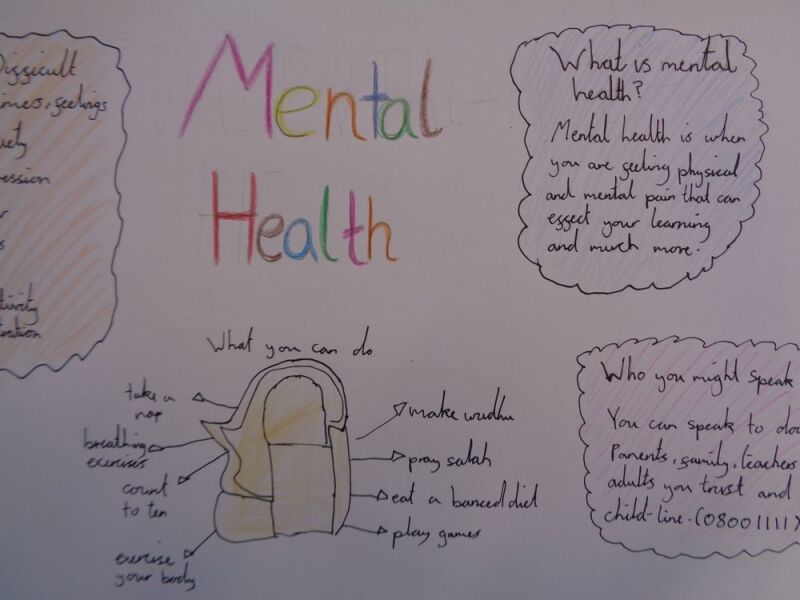 Mental
Health
Difficult
imes, feelings
iety
ression
r
s
tivity
tration
What is mental
health?
Mental health is when
you are feeling physical
and mental pain that can
effect your learning
and much more.
What you can do
take a
nap
breathing
exercises
count
to ten
exercise
your body
make wudhu
pray salah
eat a banced diet
play games
Who you might speak
You can speak to do
Parents, family, teachers
adults you trust and
child-line. (08001111)